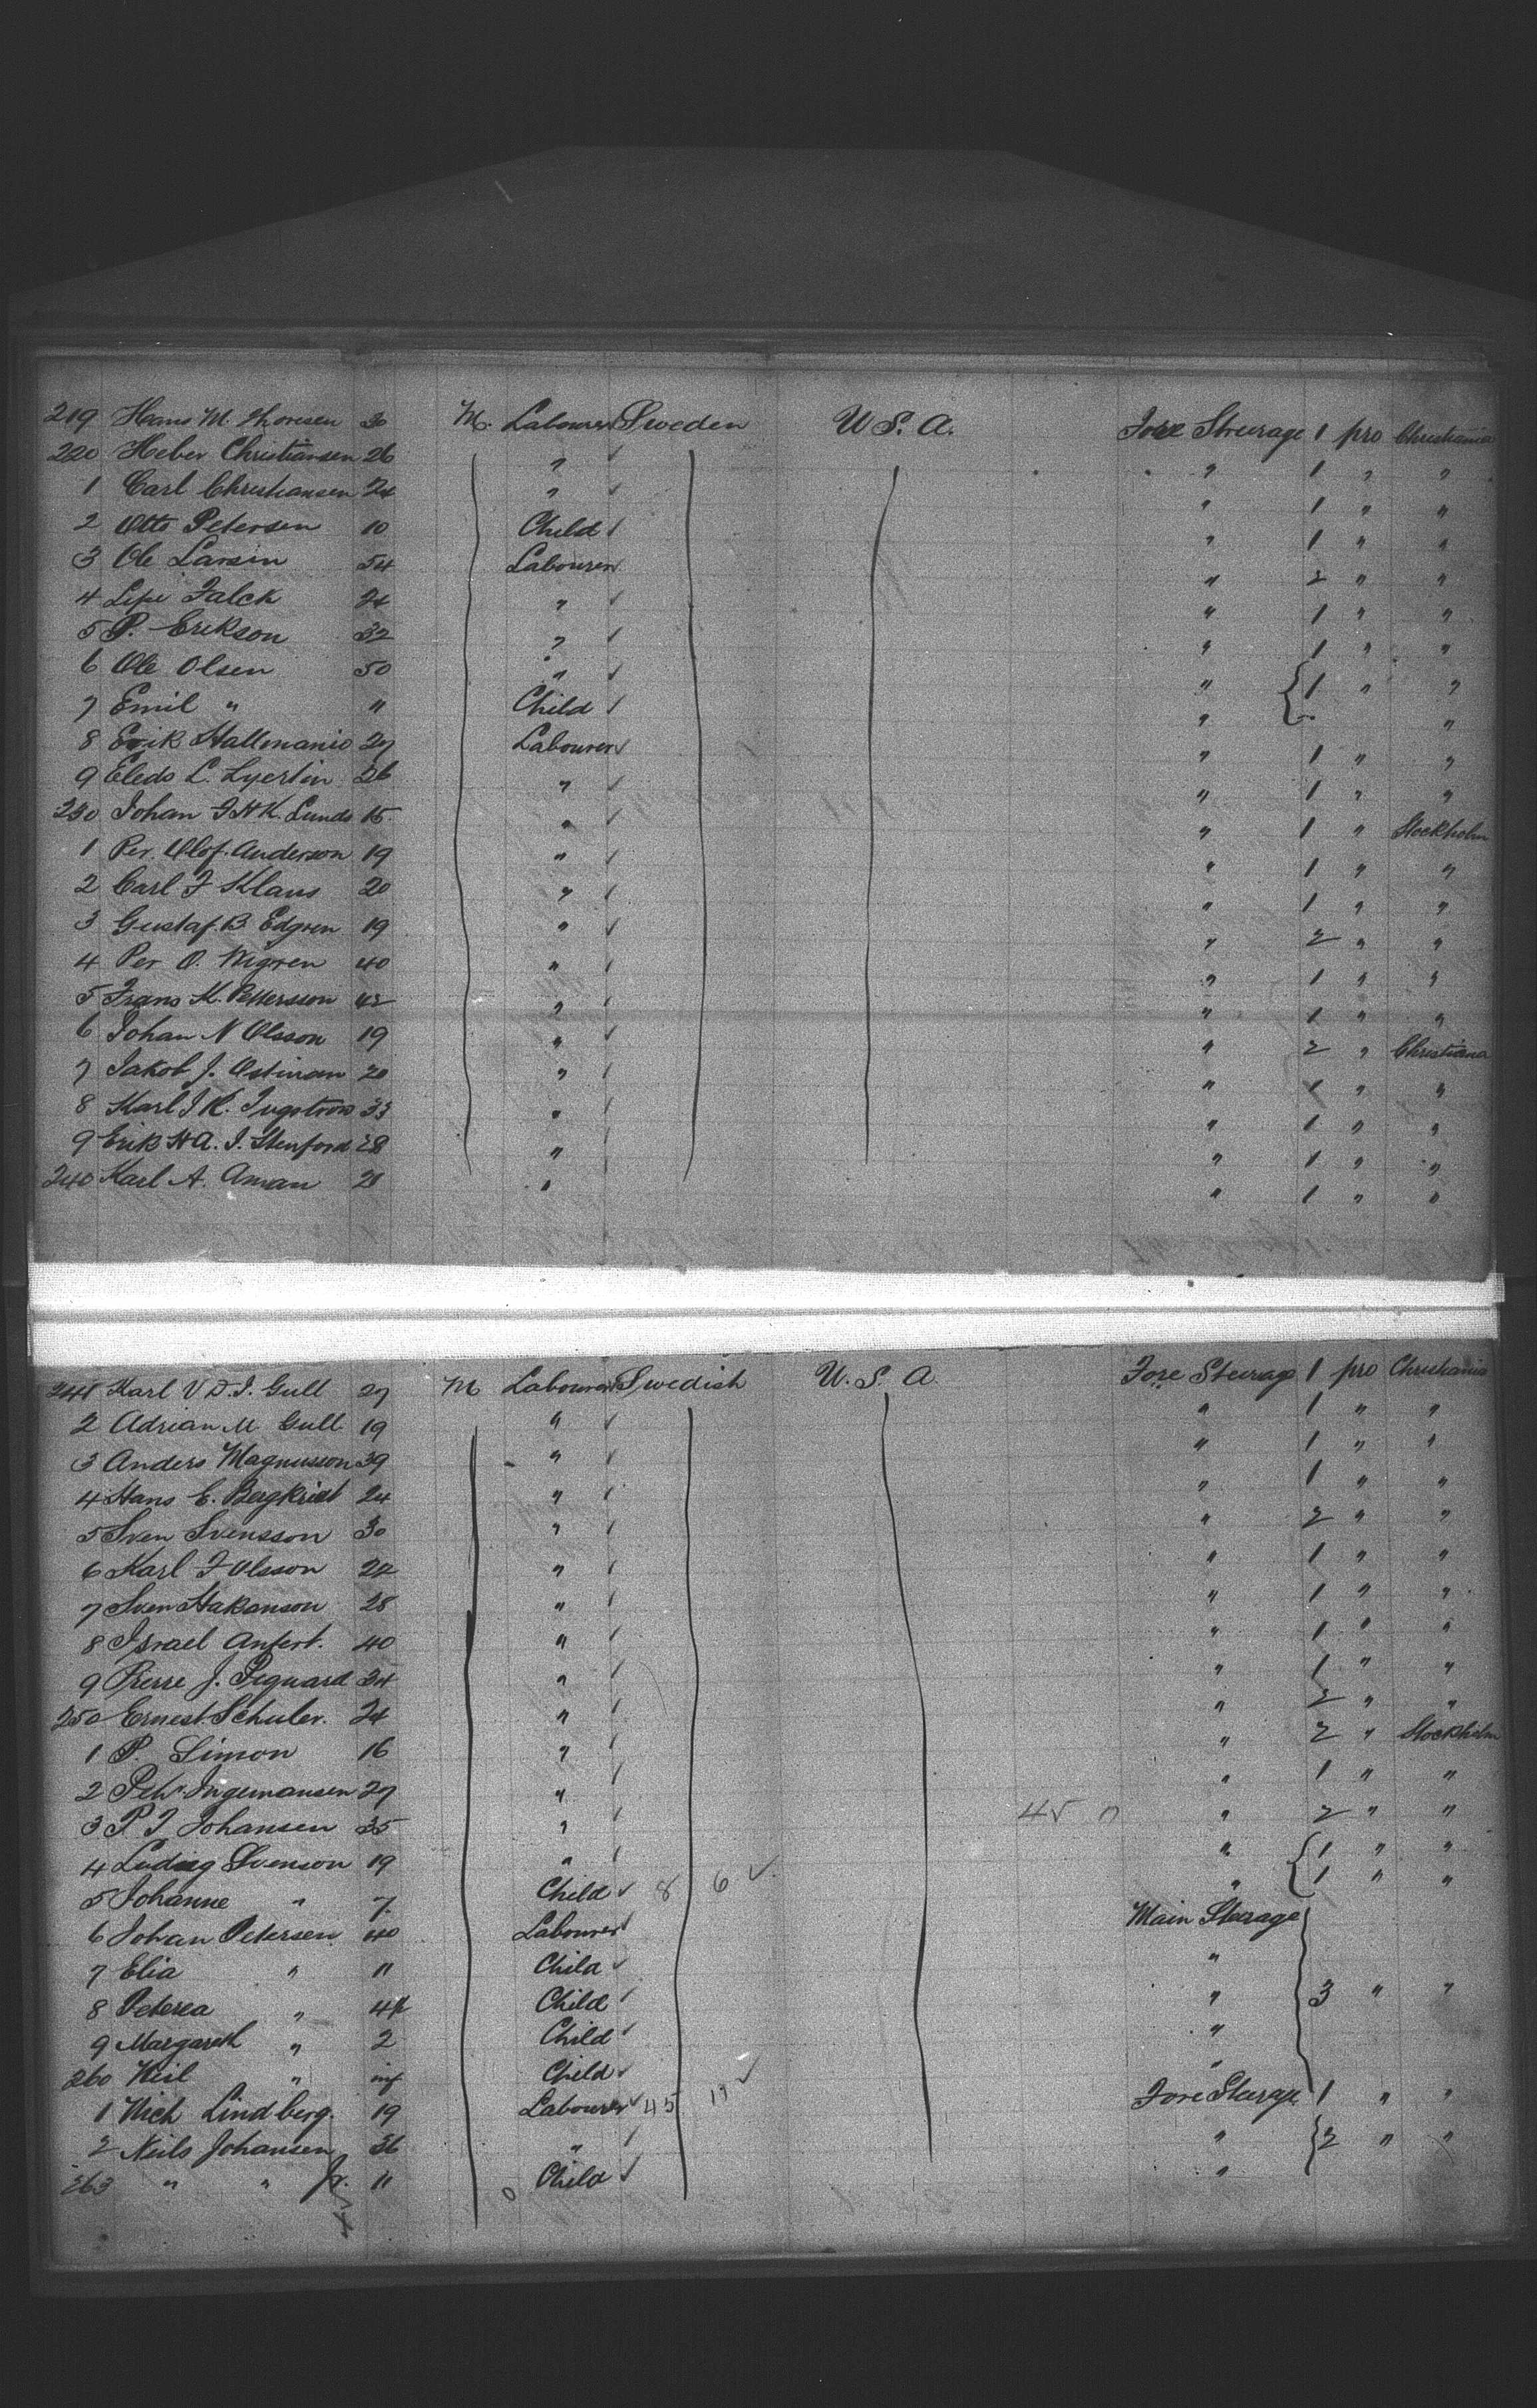 219 Hans M. Thoresen 30 M. Labourer Sweden U S. A. Fore Steerage 1 pro Christiania
220 Heber Christiansen 26 " " 1 " "
1 Carl Christiansen 24 " " 1 " "
2 Otto Petersen 10 Child " 1 " "
3 Ole Larsin 54 Labourer " 2 " "
4 Falck 24 " " 1 " "
5 P. Erikson 32 " " 1 " "
6 Ole Olsen 50 " " 1 " "
7 Emil " " Child " "
8 Erik Hallmanio 27 Labourer " 1 " "
9 Eledo L. Lyertin 26 " " 1 " "
230 Johan F H K. Lunds 15 " " 1 " Stockholm
1 Per. Olof. Anderson 19 " " 1 " "
2 Carl F Klaus 20 " " 1 " "
3 Gustaf. B Edgren 19 " " 2 " "
4 Per O. Wigren 40 " " 1 " "
5 Frans K. Pettersson 42 " " 1 " "
6 Johan N Olsson 19 " " 2 " Christiana
7 Jakob J. Ostman 20 " " 1 " "
8 Karl J K. 33 " " 1 " "
9 Erik H A. J. Stenford 28 " " 1 " "
240 Karl A. Aman 21 " " 1 " "
241 Karl V D. J. Gull 27 M Labourer Swedish U. S. A. Fore Steerage 1 pro Christiania
2 Adrian M Gull 19 " " 1 " "
3 Anders Magnusson 39 " " 1 " "
4 Hans E. 24 " " 1 " "
5 Sven Svensson 30 " " 2 " "
6 Karl F Olsson 22 " " 1 " "
7 Sven Hakanson 28 " " 1 " "
8 Israel Anfert. 40 " " 1 " "
9 Pierre J. Piguard 34 " " 1 " "
250 Ernest Schuler. 24 " " 2 " "
1 P. Simon 16 " " 2 " Stockholm
2 Ingemansen 27 " " 1 " "
3 P. J Johansen 35 " 45 " 2 " "
4 Ludwig Svenson 19 " " 1 " "
5 Johanne " 7. Child 8 6 " 1 " "
6 Johan Petersen 40 Labourer Main Steerage
7 Elia " 11 Child "
8 Peterea " 4 Child " 3 " "
9 Margareth " 2 Child "
260 " inf Child "
1 Nich Lindberg. 19 Labourer 45 11 Fore Steerage 1 " "
2 Neils Johansen 36 " " 2 " "
263 " " Jr. 11 Child "